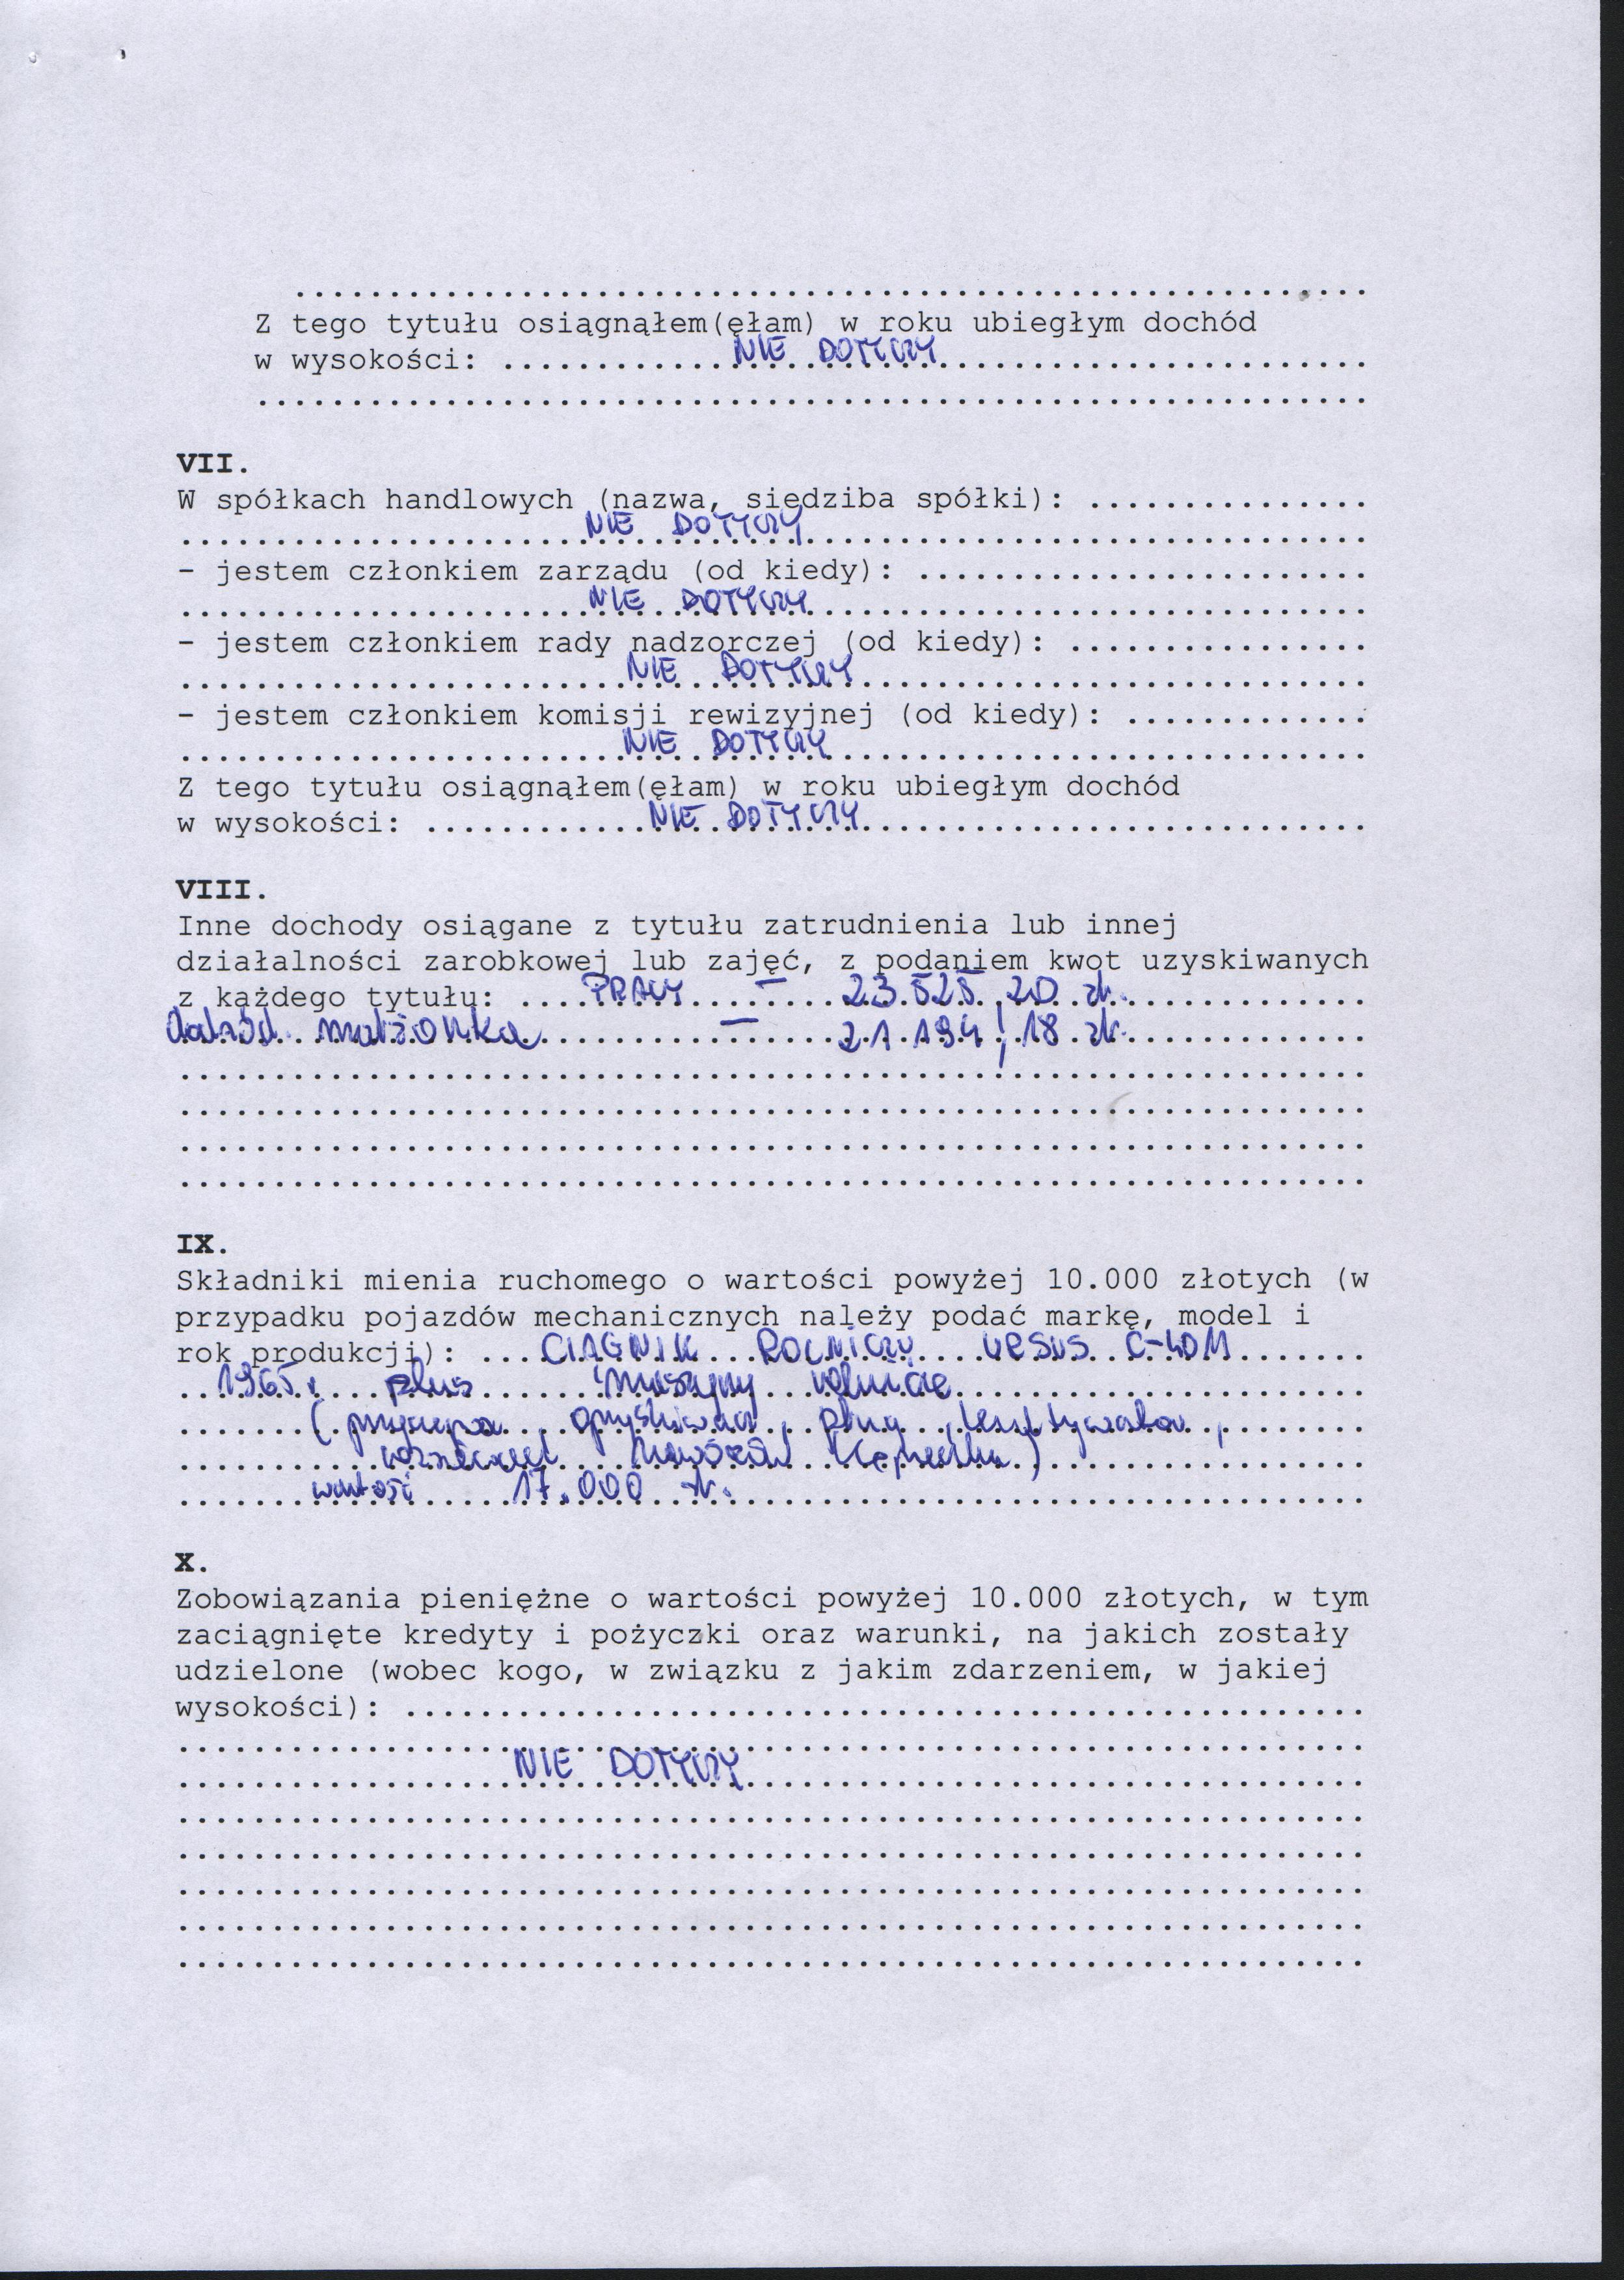 Z tego tytułu osiągnąłem(ęłam) w roku ubiegłym dochód
w wysokości: NIE DOTYCZY
VII.
W spółkach handlowych (nazwa, siedziba spółki):
NIE DOTYCZY
- jestem członkiem zarządu (od kiedy):
NIE DOTYCZY
- jestem członkiem rady nadzorczej (od kiedy):
NIE DOTYCZY
- jestem członkiem komisji rewizyjnej (od kiedy):
NIE DOTYCZY
Z tego tytułu osiągnąłem(ęłam) w roku ubiegłym dochód
w wysokości: NIE DOTYCZY
VIII.
Inne dochody osiągane z tytułu zatrudnienia lub innej
działalności zarobkowej lub zajęć, z podaniem kwot uzyskiwanych
z każdego tytułu: PRACY - 23.525,20 zł.
dochód małżonka - 21.194,18 zł.
IX.
Składniki mienia ruchomego o wartości powyżej 10.000 złotych (w
przypadku pojazdów mechanicznych należy podać markę, model i
rok produkcji): CIĄGNIK ROLNICZY URSUS C-4011
1965r plus maszyny rolnicze
(przyczepa opryskiwacz, pług, kultywator,
rozsiewacz nawozów )
wartość 17.000 zł.
X.
Zobowiązania pieniężne o wartości powyżej 10.000 złotych, w tym
zaciągnięte kredyty i pożyczki oraz warunki, na jakich zostały
udzielone (wobec kogo, w związku z jakim zdarzeniem, w jakiej
wysokości):
NIE DOTYCZY